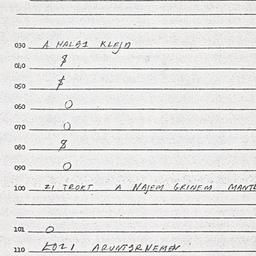 030 A HALBZ KLEJD
040 $
050 $
060 0
070 0
080 8
090 0
100 ZI TROKT A NAJEM GRINEM MANTL
101 0
110 ARUNTERNEMEN